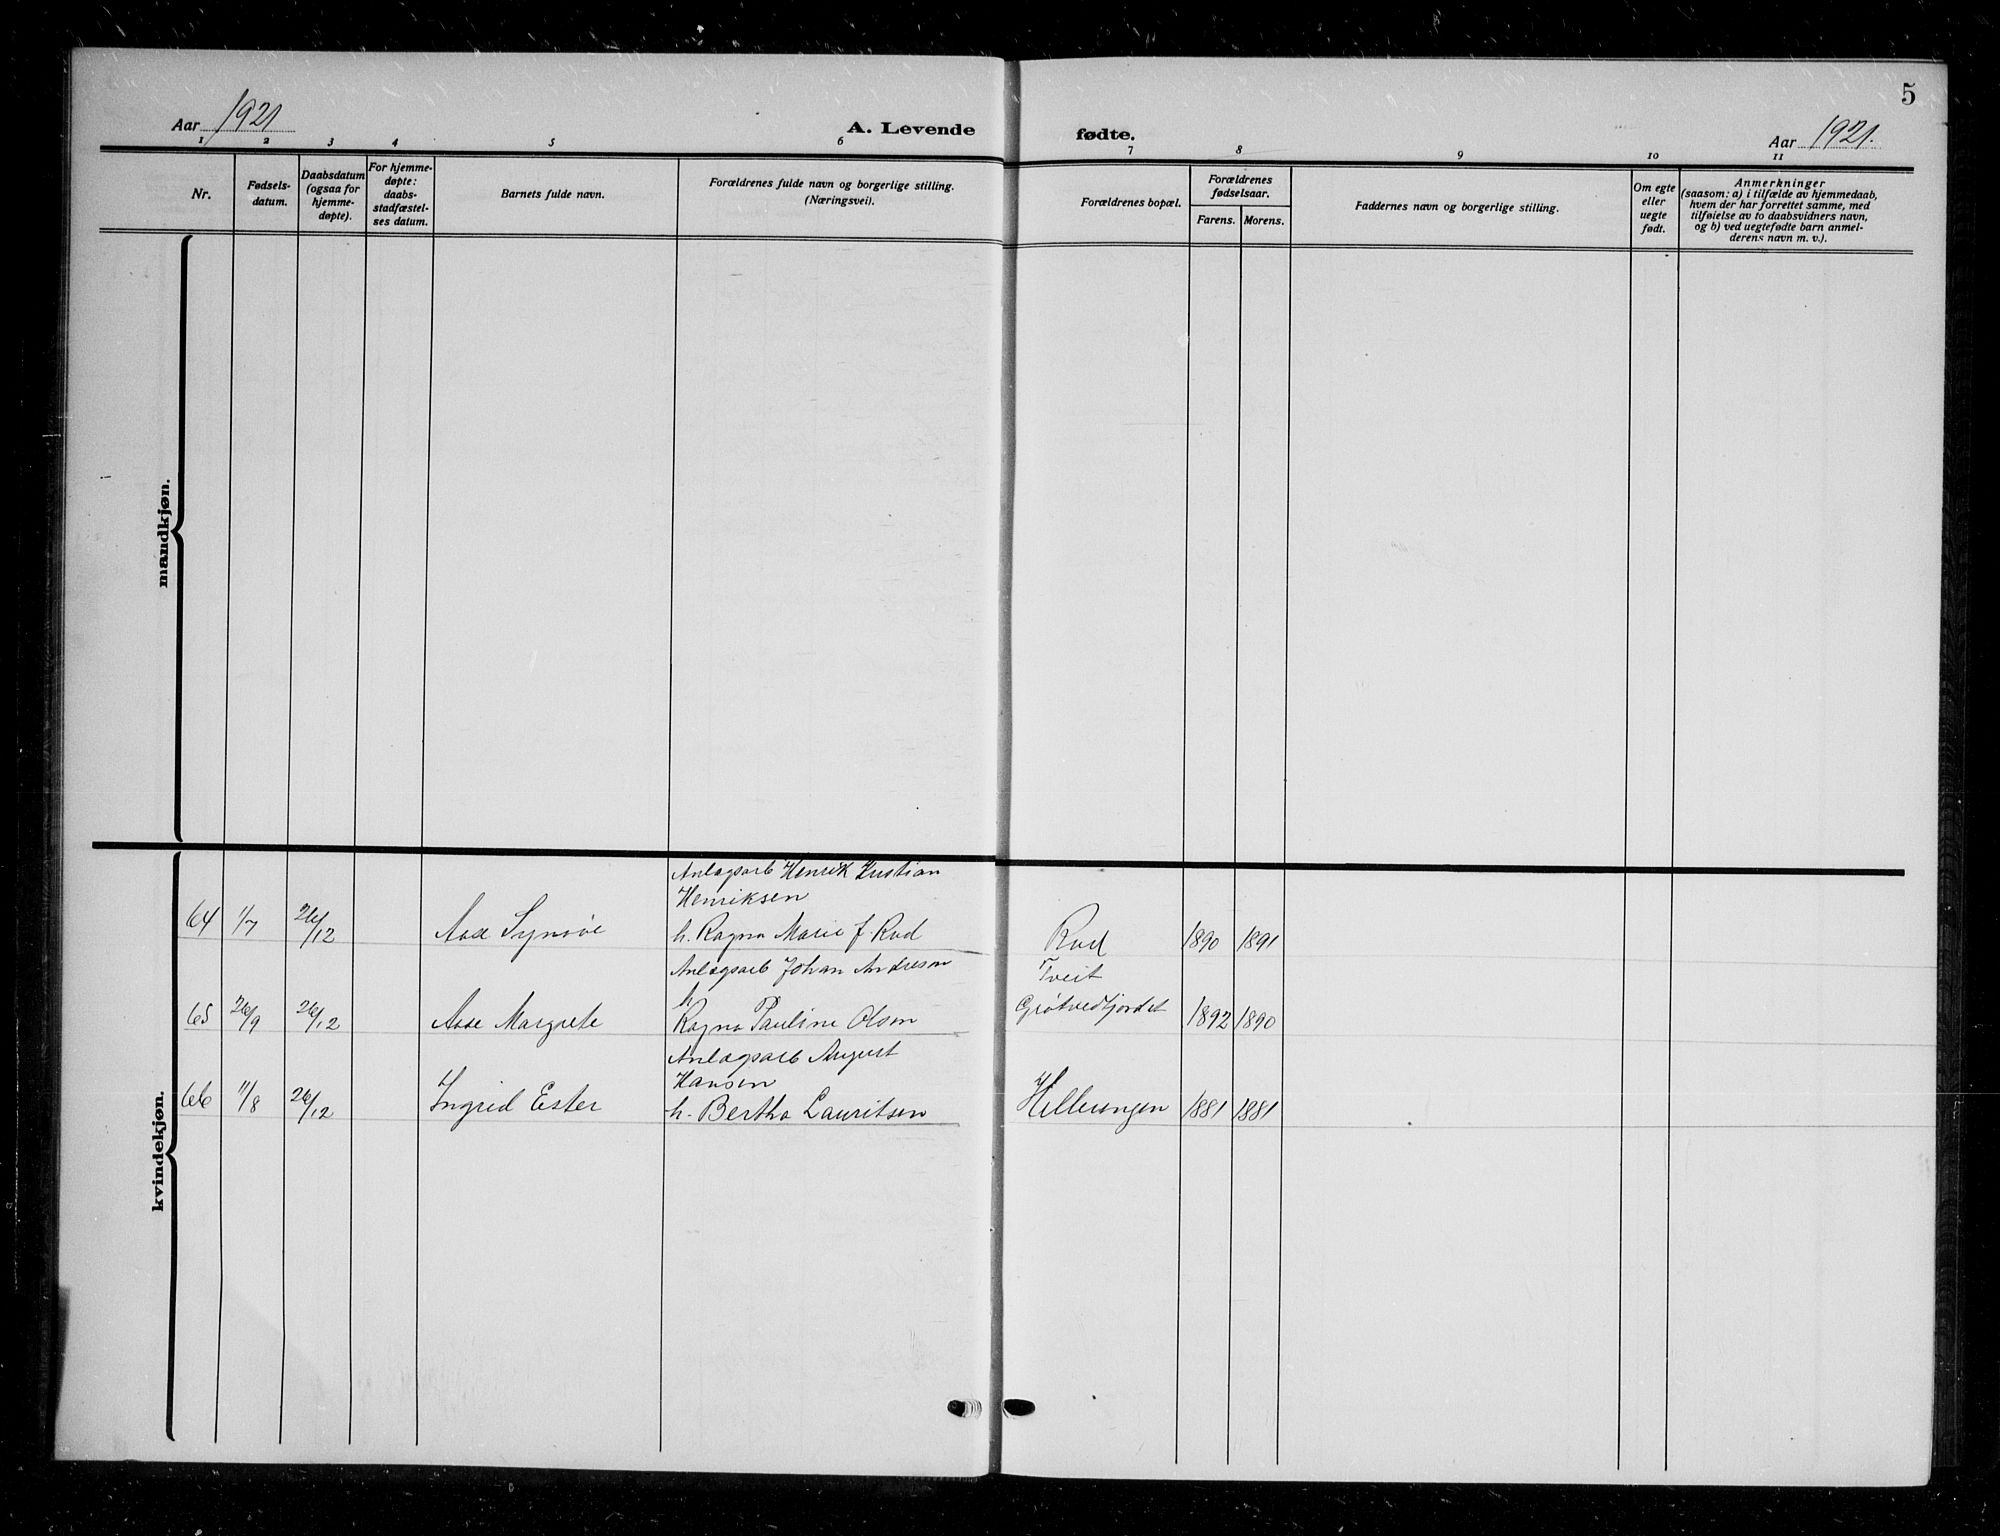 5
Aar 1921
A. Levende fødte.
Aar 1921.
1 2 3 4 5 6 7 8 9 10 11
Nr.
Fødsels-
datum.
Daabsdatum
(ogsaa for
hjemme-
døpte).
For hjemme-
døpte:
daabs-
stadfæstel-
ses datum.
Barnets fulde navn.
Forældrenes fulde navn og borgerlige stilling.
(Næringsvei).
Forældrenes bopæl.
Forældrenes
fødselsaar.
Farens. Morens.
Faddernes navn og borgerlige stilling.
Om egte
eller
uegte
født.
Anmerkninger
(saasom: a) i tilfælde av hjemmedaab,
hvem der har forrettet samme, med
tilføielse av to daabsvidners navn,
og b) ved uegtefødte barn anmel-
derens navn m. v.).
mandkjøn.
kvindekjøn.
Anlægsarb Henrik Kristian
Henriksen
64 1/7 26/12 Aase Synøve h. Ragna Marie f. Rud Rud 1890 1891
Anlægsarb Johan Andresen Tveit
h
65 26/9 26/12 Aase Margrete Ragna Pauline Olsen Grøtvedtjordet 1892 1890
Anlægsarb August
Hansen
66 11/8 26/12 Ingrid Ester h. Bertha Lauritsen Hellesengen 1881 1881